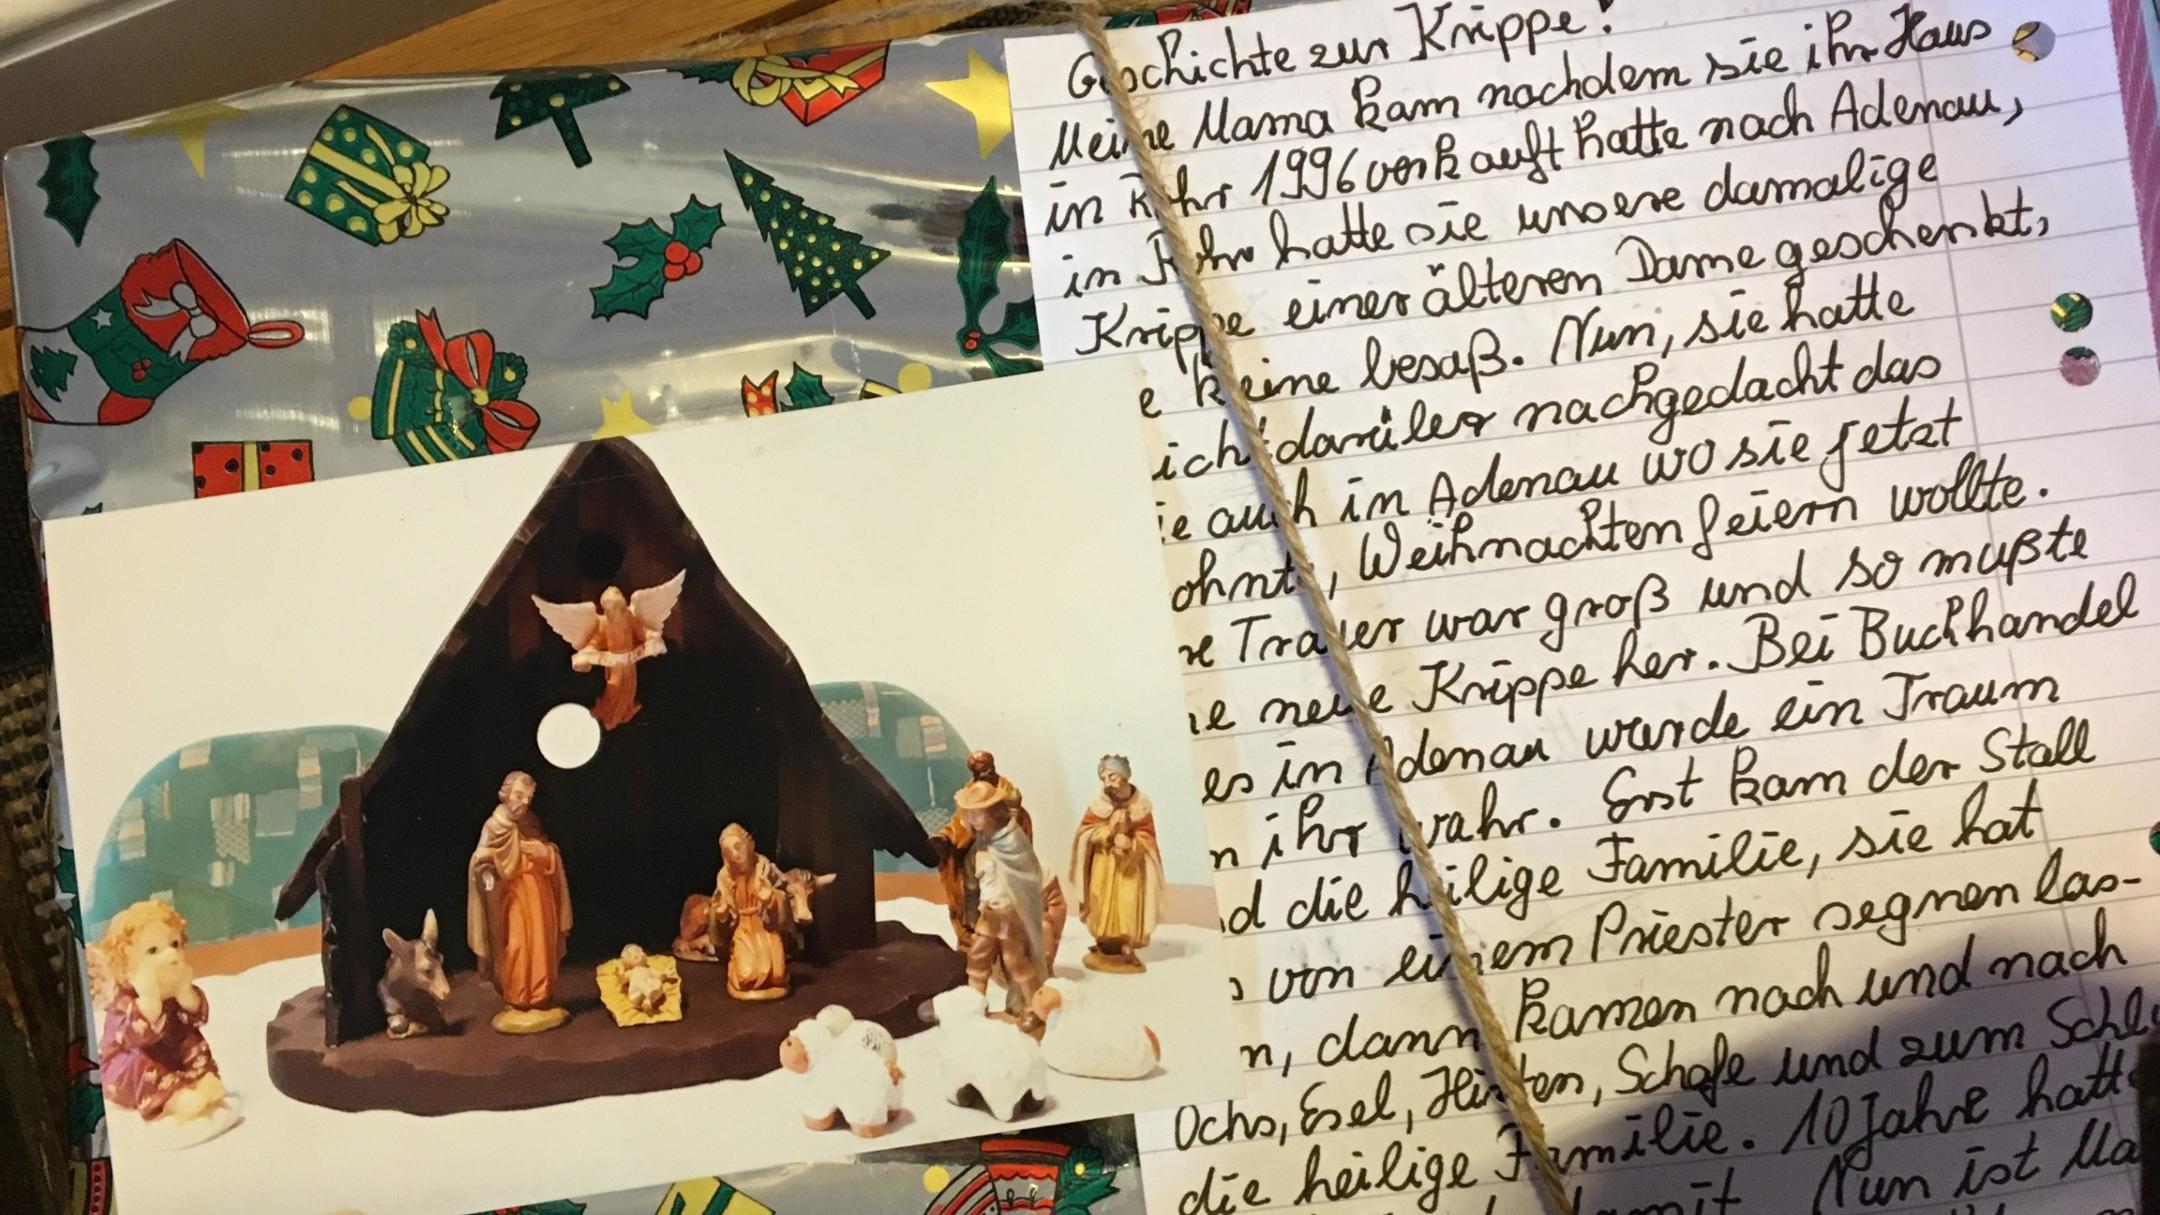 Geschichte zur Krippe!
Meine Mama kam nachdem sie ihr Haus
in Rohr 1996 verkauft hatte nach Adenau,
in Rohr hatte sie unsere damalige
Krippe einer älteren Dame geschenkt,
e keine besaß. Nun, sie hatte
icht darüber nachgedacht das
ie auch in Adenau wo sie jetzt
ohnte, Weihnachten feiern wollte.
re Trauer war groß und so mußte
ne neue Krippe her. Bei Buchhandel
es in Adenau wurde ein Traum
n ihr wahr. Erst kam der Stall
nd die heilige Familie, sie hat
s von einem Priester segnen las-
n, dann kamen nach und nach
Ochs, Esel, Hirten, Schafe und zum Schlu
die heilige Familie. 10 Jahre hatte
damit. Nun ist Ma